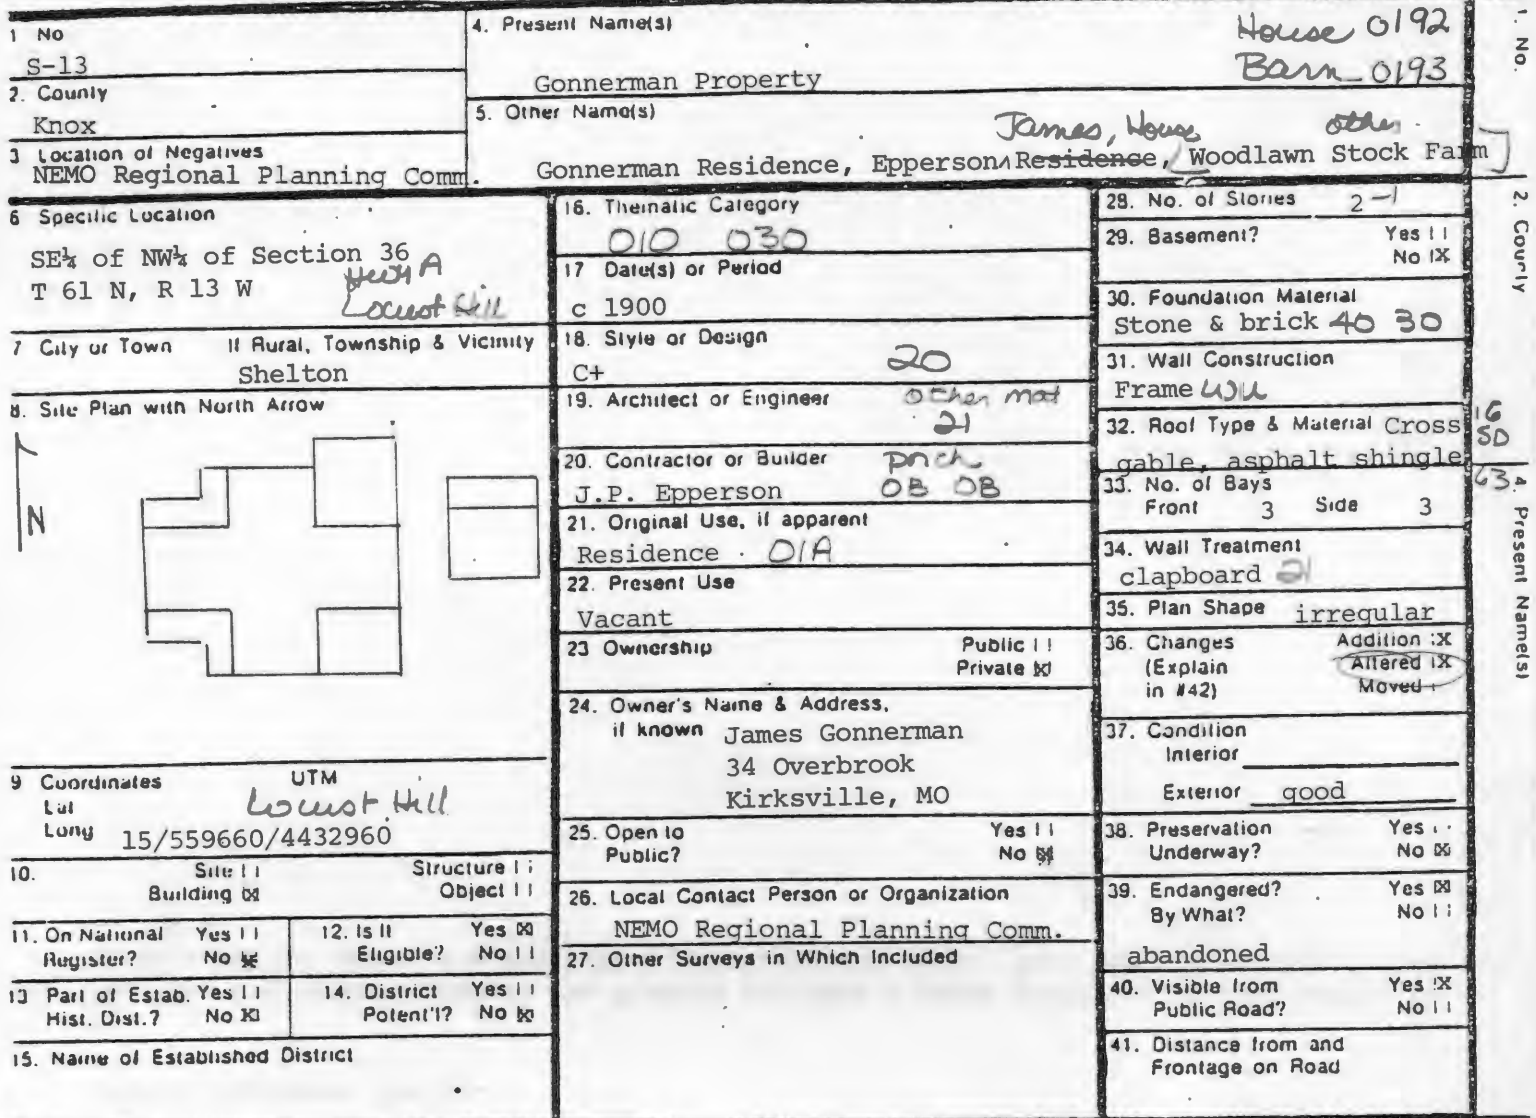 1 No
S-13
2. County
Knox
3 Location of Negatives
NEMO Regional Planning Comm.
4. Present Name(s)
House 0192
Barn 0193
Gonnerman Property
5. Other Name(s)
James, House other
Gonnerman Residence, Epperson Residence, Woodlawn Stock Farm
6 Specific Location
SE¼ of NW¼ of Section 36
T 61 N, R 13 W
Hwy A
Locust Hill
7 City or Town If Rural, Township & Vicinity
Shelton
8. Site Plan with North Arrow
N
9 Coordinates UTM
Lat
Long
Locust Hill
15/559660/4432960
10. Site Structure
Building X Object
11. On National Register? Yes No X
12. Is It Eligible? Yes X No
13 Part of Estab. Hist. Dist.? Yes No X
14. District Potent'l? Yes No X
15. Name of Established District
16. Thematic Category
010 030
17 Date(s) or Period
c 1900
18. Style or Design
C+ 20
19. Architect or Engineer
other mat
21
20. Contractor or Builder
porch
J.P. Epperson OB OB
21. Original Use, if apparent
Residence 01A
22. Present Use
Vacant
23 Ownership Public
Private X
24. Owner's Name & Address,
if known James Gonnerman
34 Overbrook
Kirksville, MO
25. Open to Public? Yes
No X
26. Local Contact Person or Organization
NEMO Regional Planning Comm.
27. Other Surveys in Which Included
28. No. of Stories 2-1
29. Basement? Yes
No X
30. Foundation Material
Stone & brick 40 30
31. Wall Construction
Frame
32. Roof Type & Material Cross
gable, asphalt shingle
16
SD
63
33. No. of Bays
Front 3 Side 3
34. Wall Treatment
clapboard 21
35. Plan Shape irregular
36. Changes Addition X
(Explain Altered X
in #42) Moved
37. Condition
Interior
Exterior good
38. Preservation Underway? Yes
No X
39. Endangered? Yes X
By What? No
abandoned
40. Visible from Public Road? Yes X
No
41. Distance from and
Frontage on Road
1. No.
2. County
4. Present Name(s)